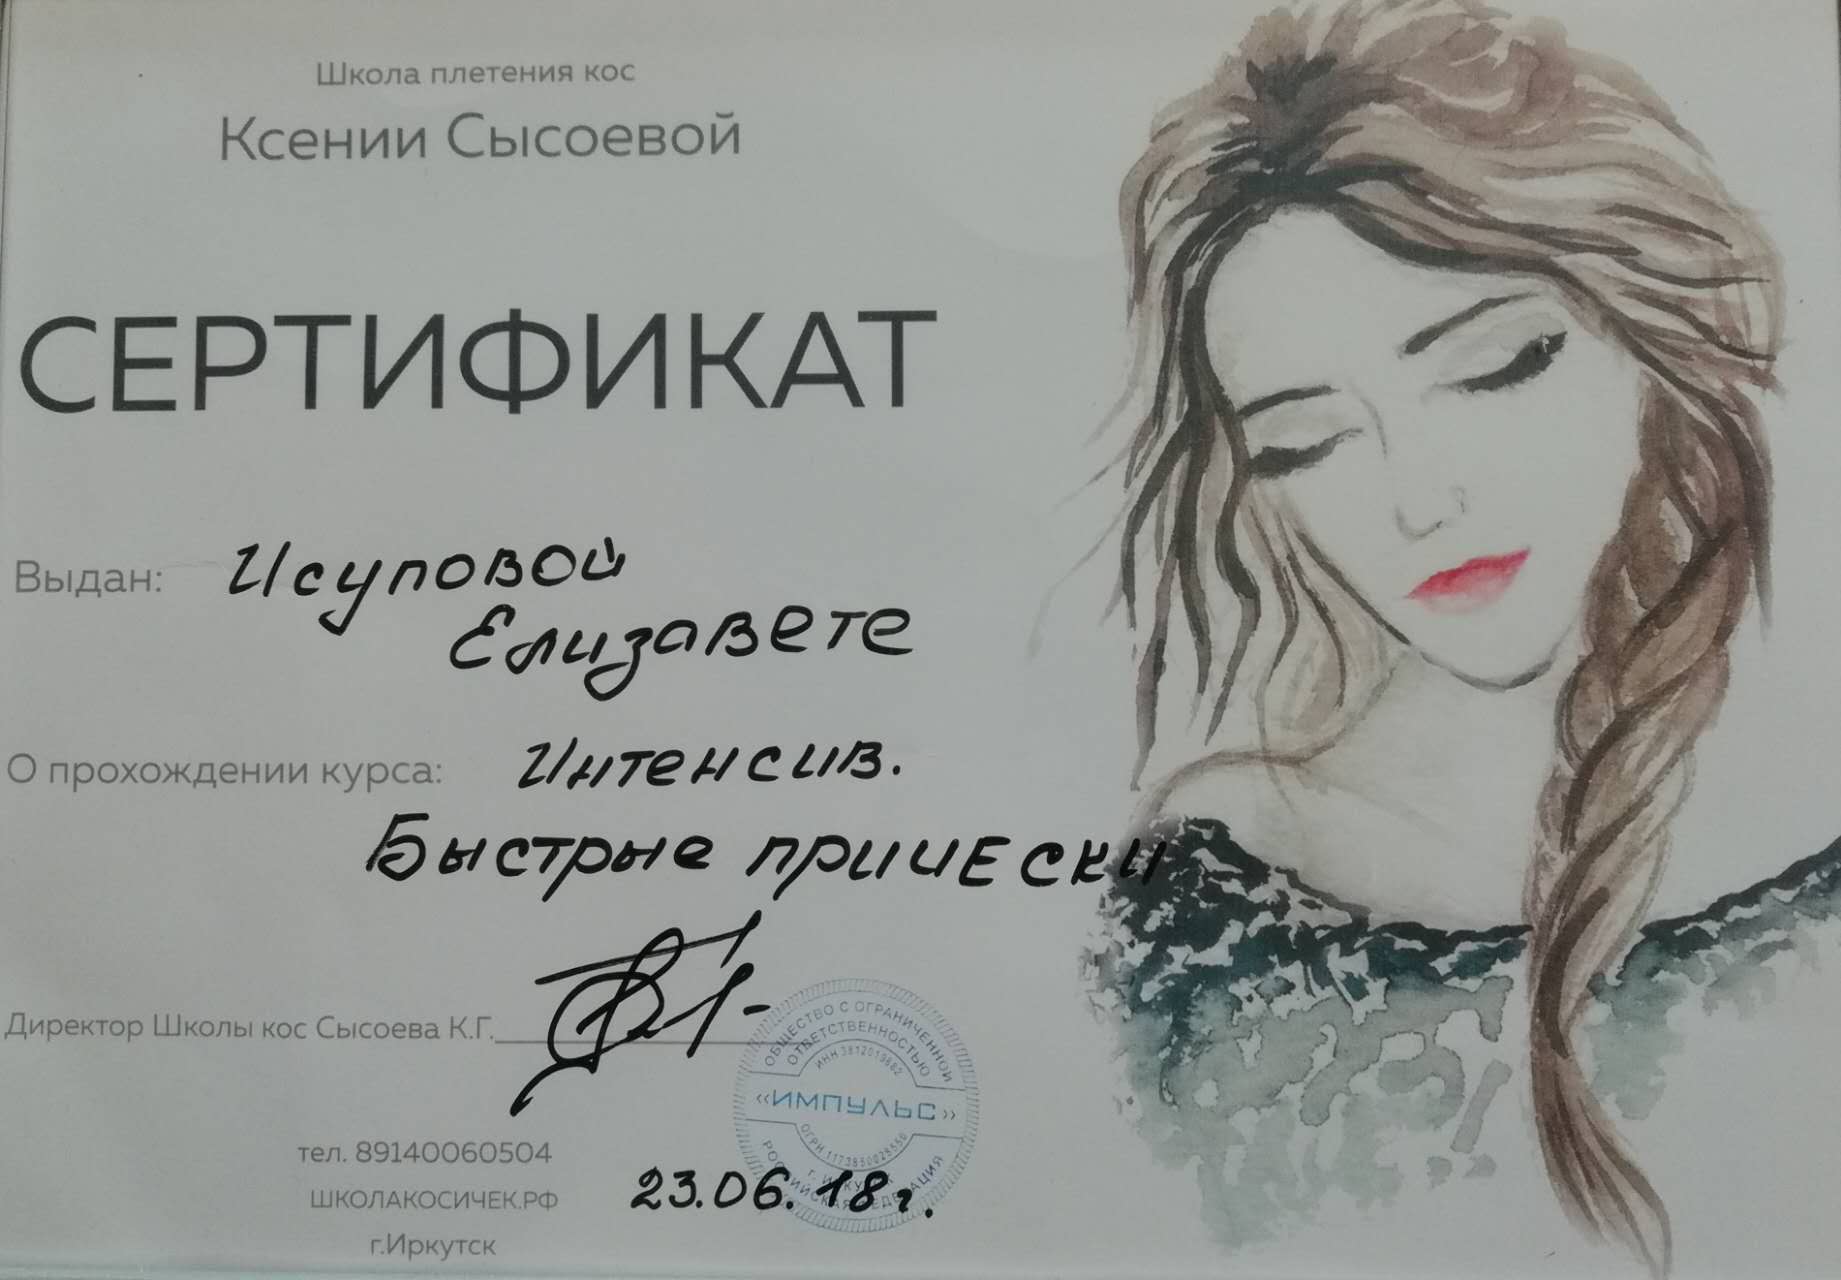 Школа плетения кос
Ксении Сысоевой
СЕРТИФИКАТ
Выдан: Исуповой
Елизавете
О прохождении курса: Интенсив.
Быстрые прически
Директор Школы кос Сысоева К.Г.
ОБЩЕСТВО С ОГРАНИЧЕННОЙ
ОТВЕТСТВЕННОСТЬЮ
«ИМПУЛЬС»
РОССИЙСКАЯ ФЕДЕРАЦИЯ
тел. 89140060504
23.06.18г.
ШКОЛАКОСИЧЕК.РФ
г.Иркутск